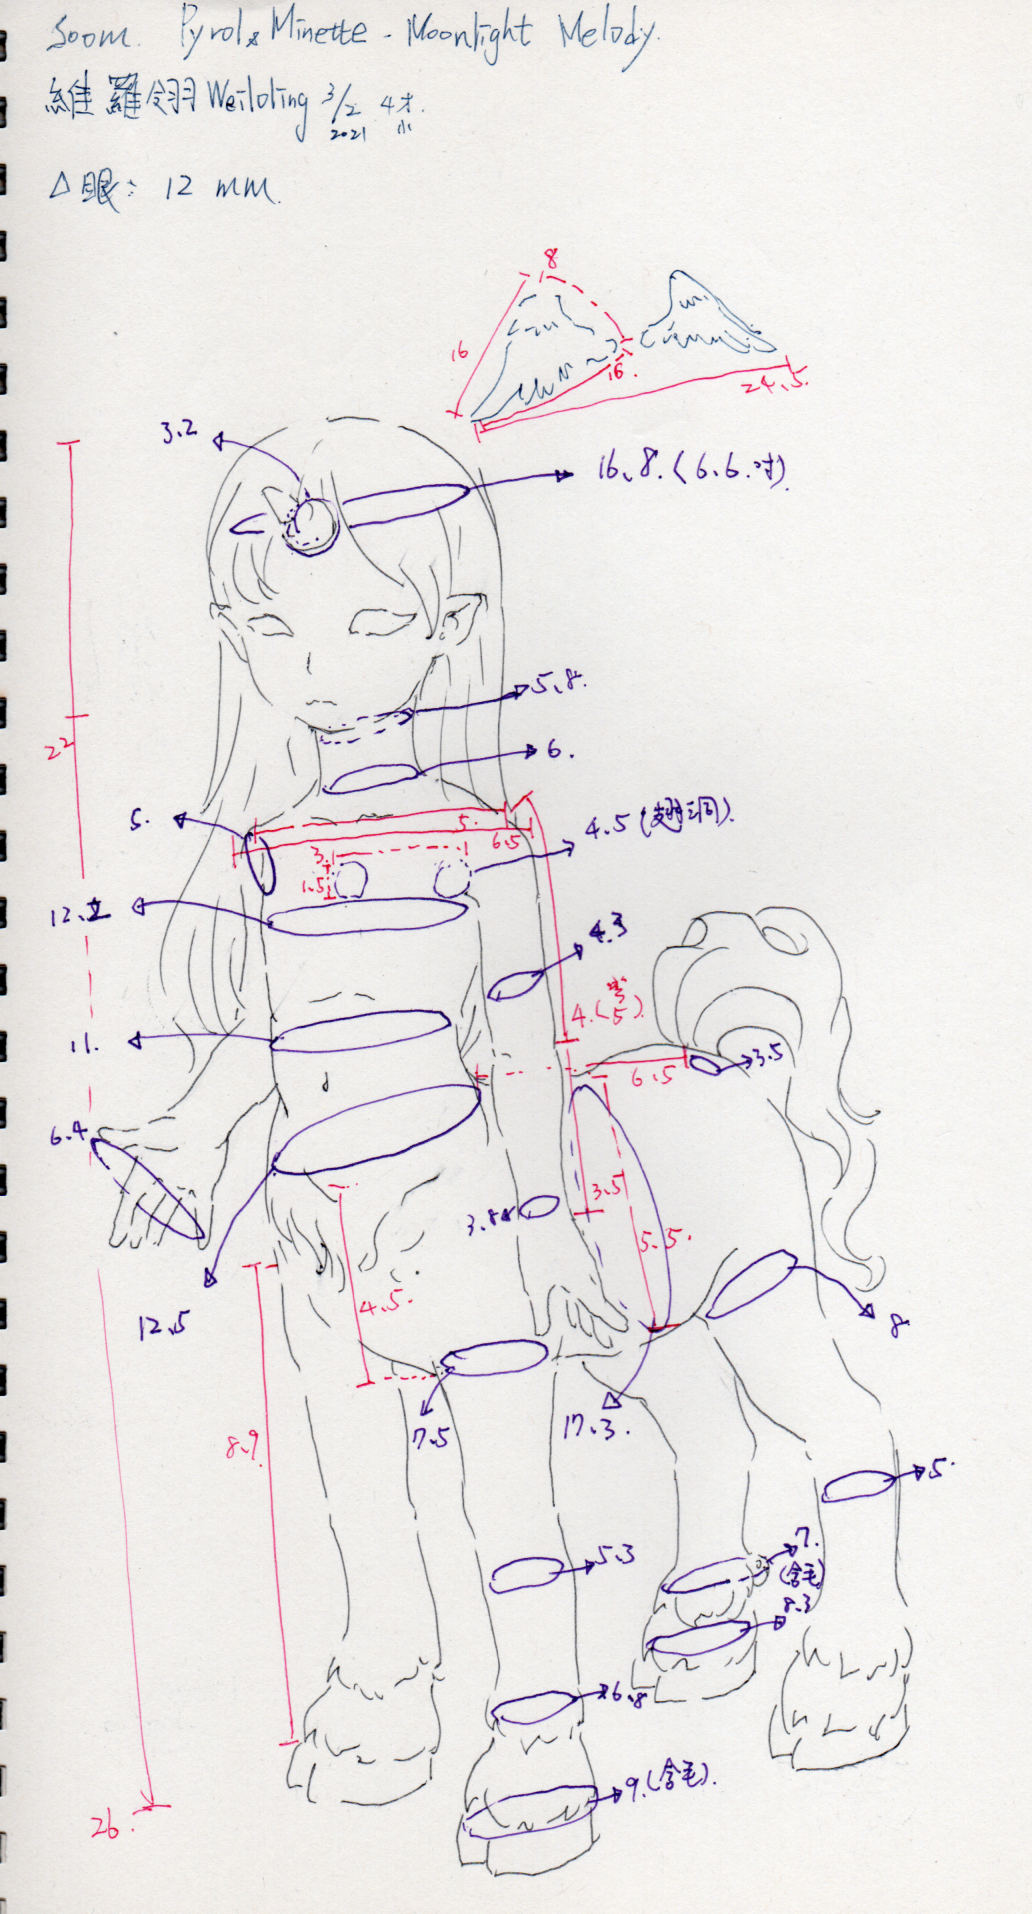 Soom. Pyrol & Minette - Moonlight Melody.
維羅翎 Weiloling 3/2 2021
△眼: 12 mm.
8
16
16.
24.5.
3.2
16.8. (6.6.吋)
5.8.
22
6.
5.
5.
6.5
4.5 (翅洞).
3.
1.5
12.
4.3
4. (彎5).
11.
3.5
6.5
6.4
3.5
3.8
5.5.
4.5.
12.5
8
7.5
17.3.
8.9
5.
5.3
7. (含毛)
8.3
6.8
9. (含毛).
26.